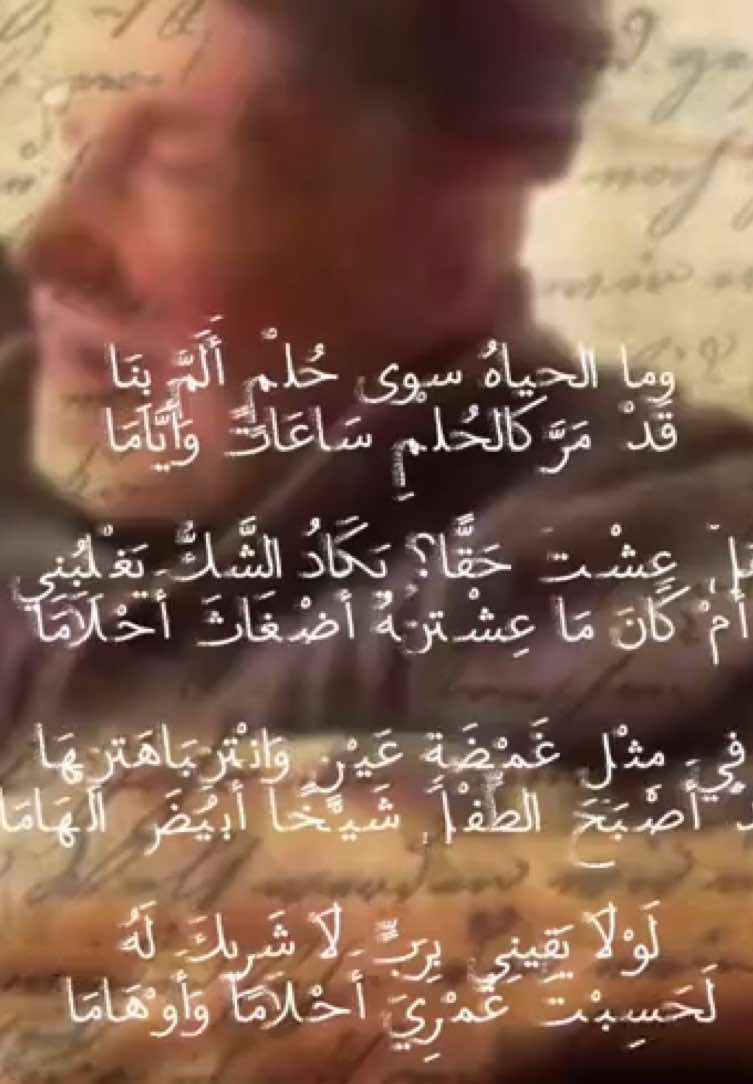 وما الحياهُ سوى حُلْمٍ أَلَمَّ بِنَا
قَدْ مَرَّ كَالحُلْمِ سَاعَاتٌ وَأَيَّامَا
عِشْت حَقًّا؟ يَكَادُ الشَّكُّ يَغْلِبُنِي
أَمْ كَانَ مَا عِشْتهُ أَضْغَاثَ أَحْلَامَا
فِي مِثْلِ غَمْضَةِ عَيْنٍ وَانْتِبَاهَتِهَا
أَصْبَحَ الطِّفْلُ شَيْخًا أَبْيَضَ الهَامَا
لَوْلَا يَقِينِي بِرَبٍّ لَا شَرِيكَ لَهُ
لَحَسِبْتَ عُمْرِيَ أَحْلَامَا وَأَوْهَامَا